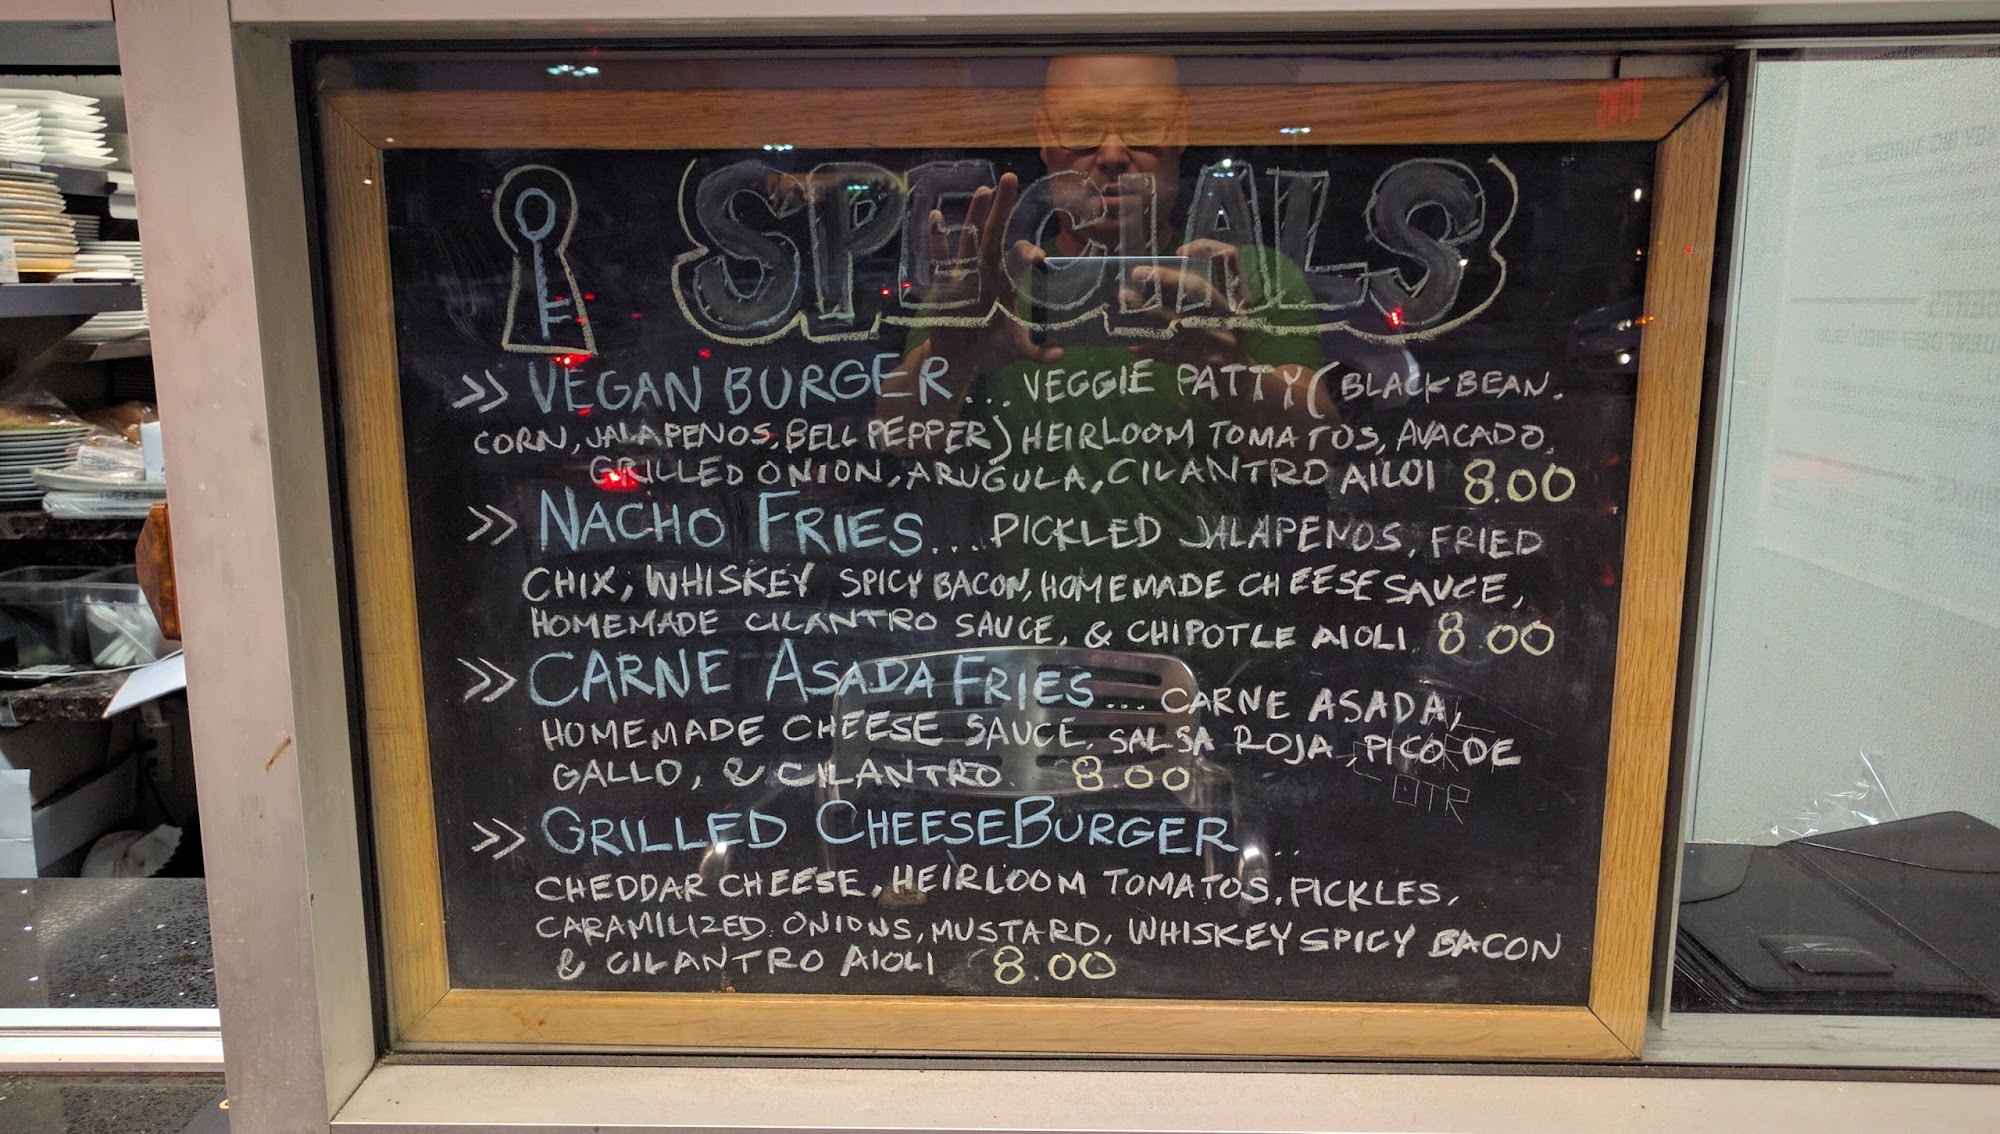 SPECIALS
>> VEGAN BURGER... VEGGIE PATTY (BLACK BEAN.
CORN, JALAPENOS, BELL PEPPER) HEIRLOOM TOMATOS, AVACADO,
GRILLED ONION, ARUGULA, CILANTRO AILOI 8.00
>> NACHO FRIES... PICKLED JALAPENOS, FRIED
CHIX, WHISKEY SPICY BACON, HOMEMADE CHEESE SAUCE,
HOMEMADE CILANTRO SAUCE, & CHIPOTLE AIOLI. 8.00
>> CARNE ASADA FRIES... CARNE ASADA,
HOMEMADE CHEESE SAUCE, SALSA ROJA, PICO DE
GALLO, & CILANTRO. 8.00
OTR
>> GRILLED CHEESEBURGER...
CHEDDAR CHEESE, HEIRLOOM TOMATOS, PICKLES,
CARAMILIZED ONIONS, MUSTARD, WHISKEY SPICY BACON
& CILANTRO AIOLI 8.00